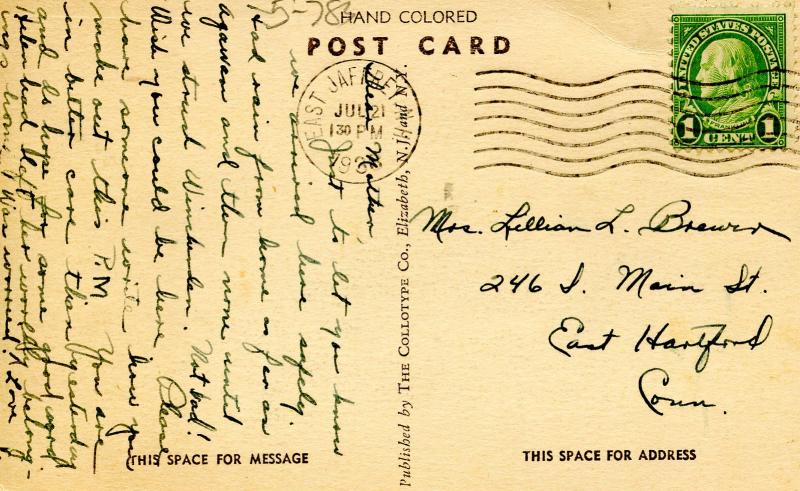 5-786
HAND COLORED
POST CARD
UNITED STATES POSTAGE
FRANKLIN
1 1
CENT
EAST JAFFREY
JUL 21
1 30 PM
193
N.H.
Dear Mother
Just to let you know
we arrived here safely.
Had rain from home as far as
Agawan and then none until
we struck Winchendon. Not bad!
Wish you could be here. Please
have someone write how you
make out this P.M. You are
in better care than yesterday
and do hope for some good word.
Helen had left her worldly belong-
ings home. I was worried! Love
Published by THE COLLOTYPE CO., Elizabeth, N.J. and N.Y.
Mrs. Lillian L. Brewer
246 S. Main St.
East Hartford
Conn.
THIS SPACE FOR MESSAGE
THIS SPACE FOR ADDRESS